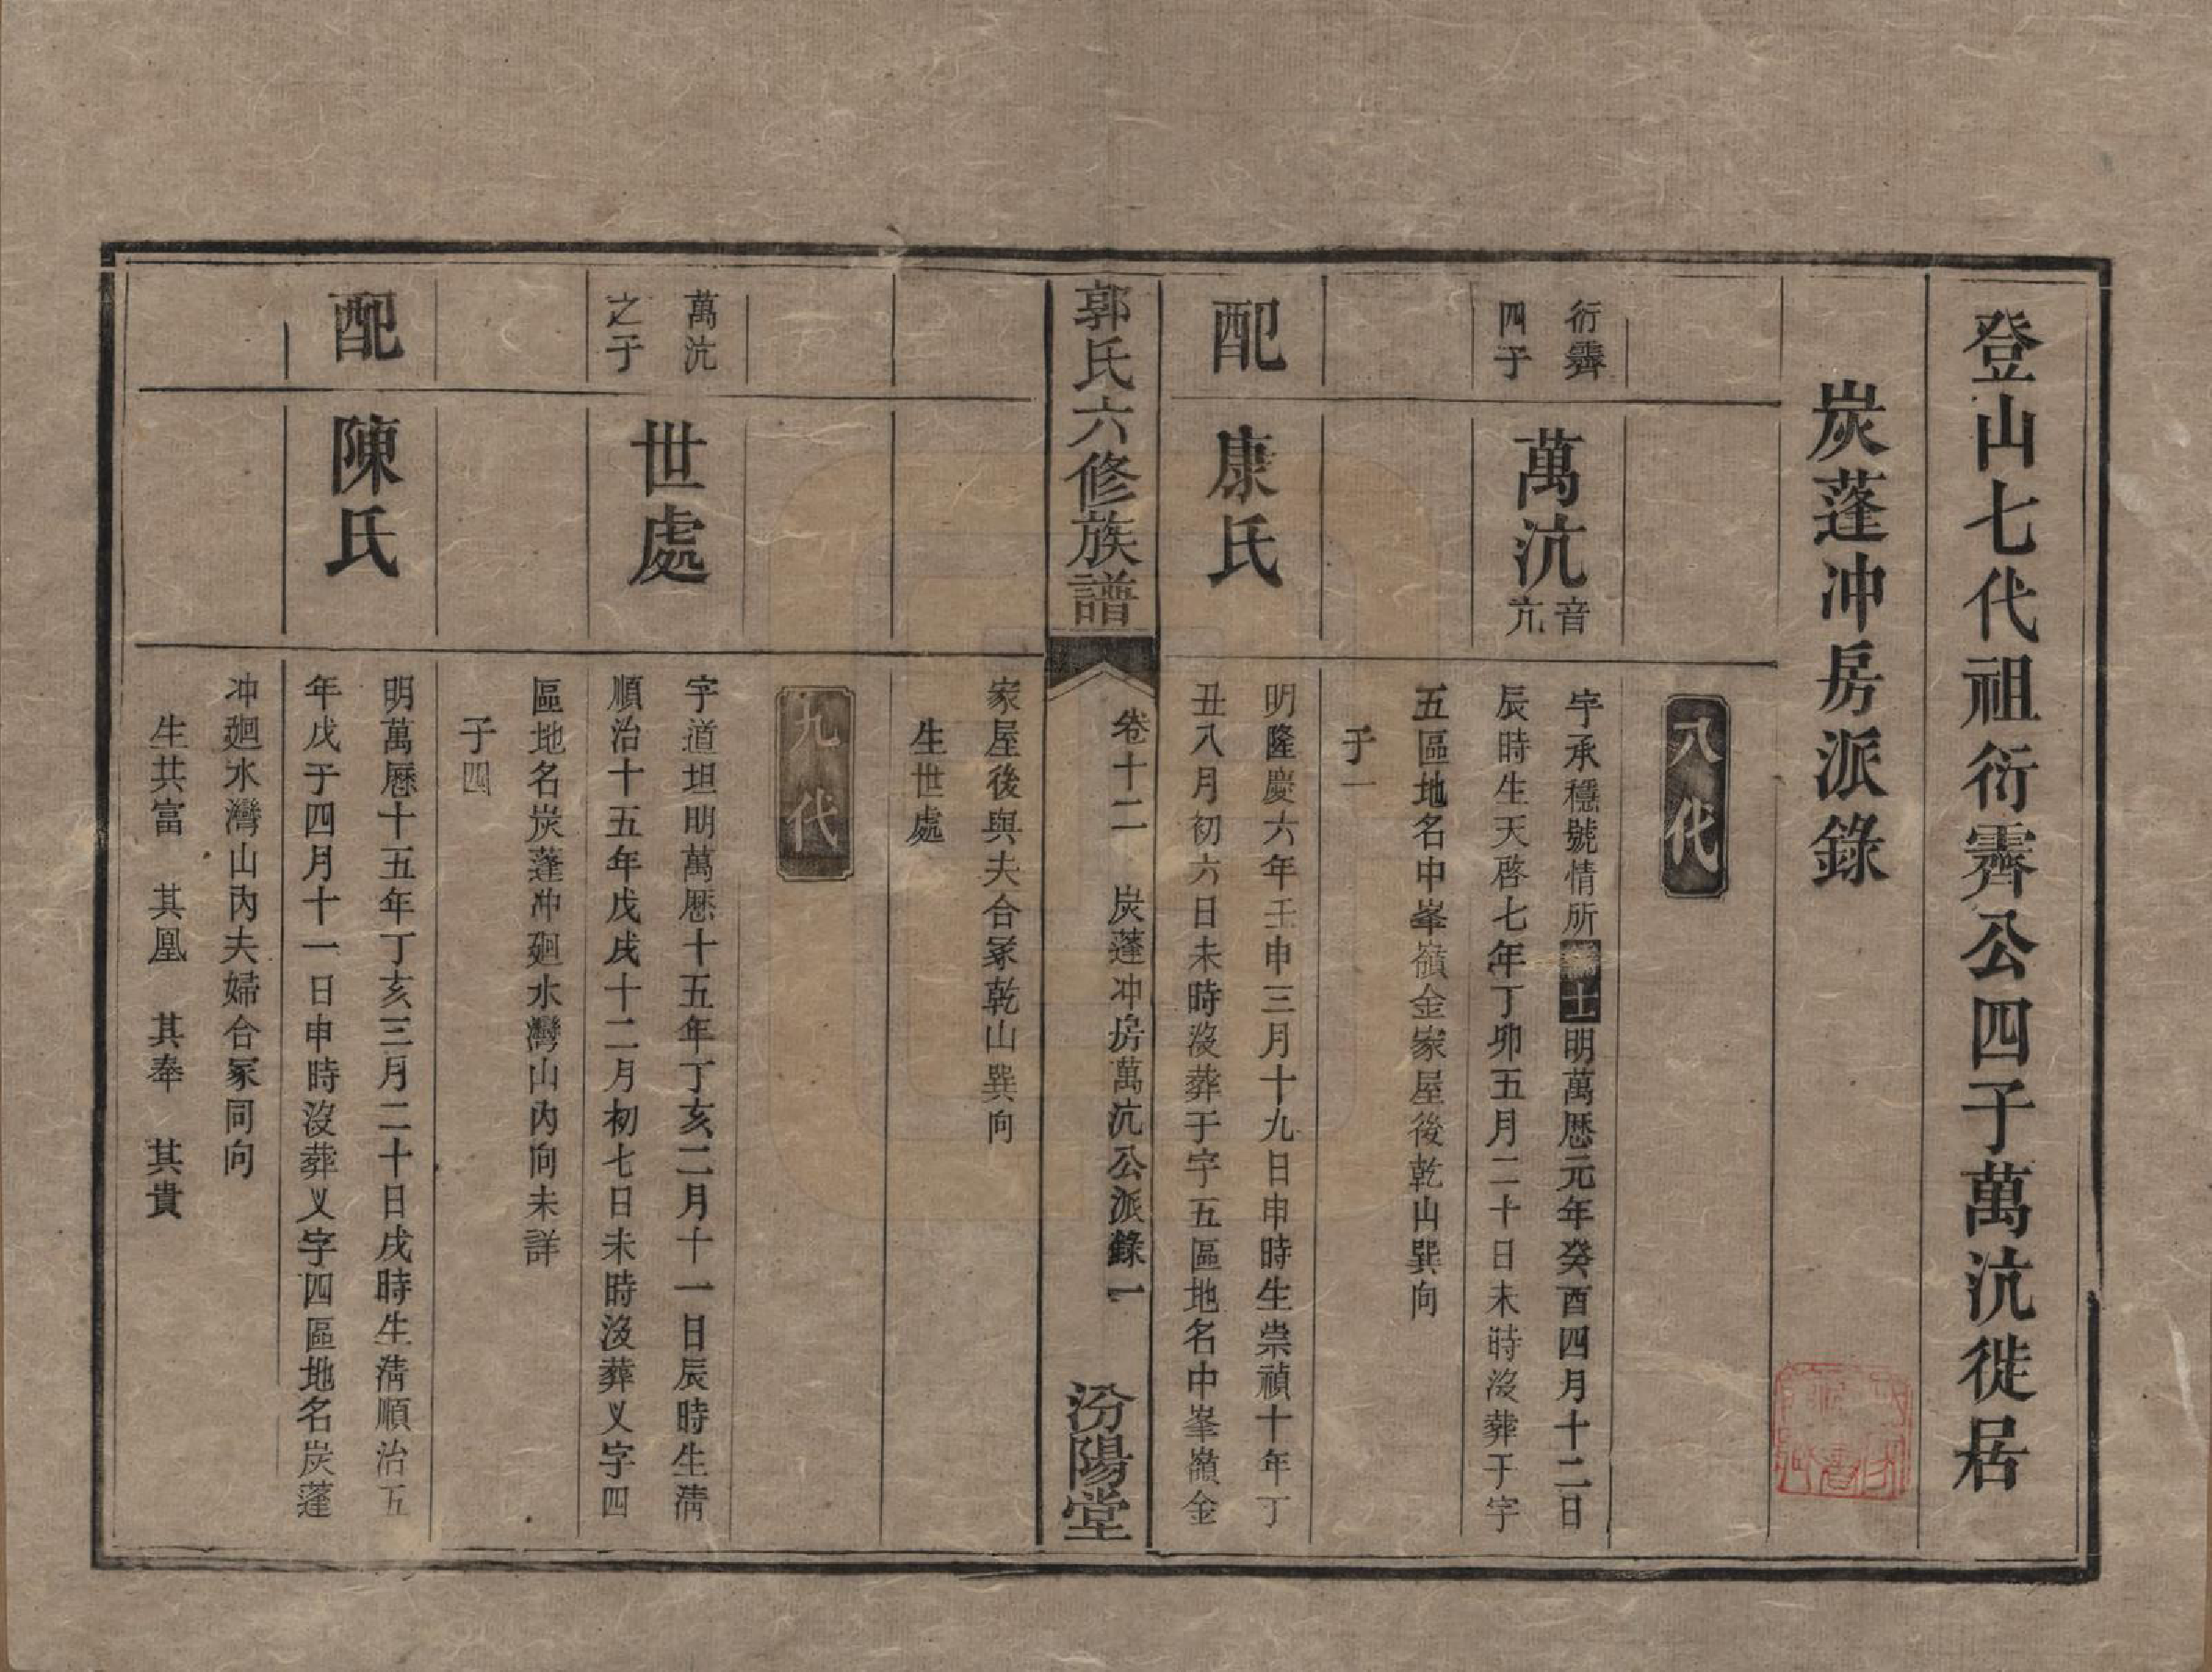 登山七代祖衍霽公四子萬沆徙居
炭蓬冲房派錄
八代
衍霽
四子
萬沆
音
亢
字承穩號情所
明萬曆元年癸酉四月十二日
辰時生天啓七年丁卯五月二十日未時沒葬于字
五區地名中峯嶺金家屋後乾山巽向
子一
配
康氏
明隆慶六年壬申三月十九日申時生崇禎十年丁
丑八月初六日未時沒葬于字五區地名中峯嶺金
郭氏六修族譜
卷十二
炭蓬冲房萬沆公派錄一
汾陽堂
家屋後與夫合冢乾山巽向
生世處
九代
萬沆
之子
世處
字道坦明萬曆十五年丁亥二月十一日辰時生清
順治十五年戊戌十二月初七日未時沒葬乂字四
區地名炭蓬冲廻水灣山內向未詳
子四
配
陳氏
明萬曆十五年丁亥三月二十日戌時生清順治五
年戊子四月十一日申時沒葬乂字四區地名炭蓬
冲廻水灣山內夫婦合冢同向
生共富 其凰 其奉 其貴